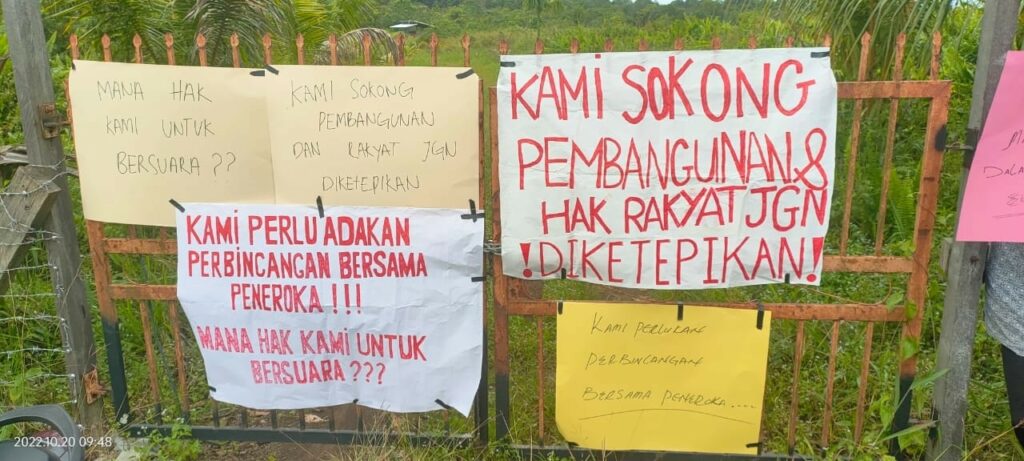 MANA HAK
KAMI UNTUK
BERSUARA ??
KAMI SOKONG
PEMBANGUNAN
DAN RAKYAT JGN
DIKETEPIKAN
KAMI PERLU ADAKAN
PERBINCANGAN BERSAMA
PENEROKA !!!
MANA HAK KAMI UNTUK
BERSUARA ???
KAMI SOKONG
PEMBANGUNAN &
HAK RAKYAT JGN
! DIKETEPIKAN !
KAMI PERLUKAN
PERBINCANGAN
BERSAMA PENEROKA ....
2022.10.20 09:48